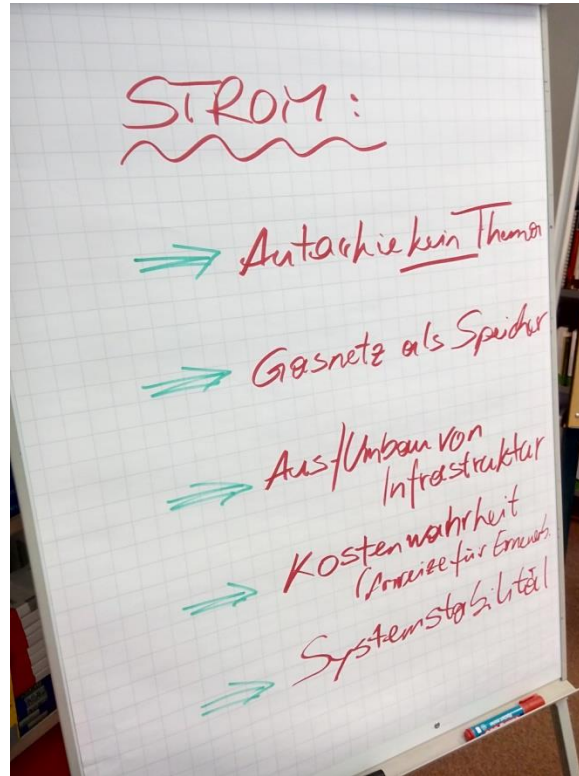 STROM:
Autarkie kein Thema
Gasnetz als Speicher
Aus-/Umbau von
Infrastruktur
Kostenwahrheit
(Anreize für Erneuerb.
Systemstabilität